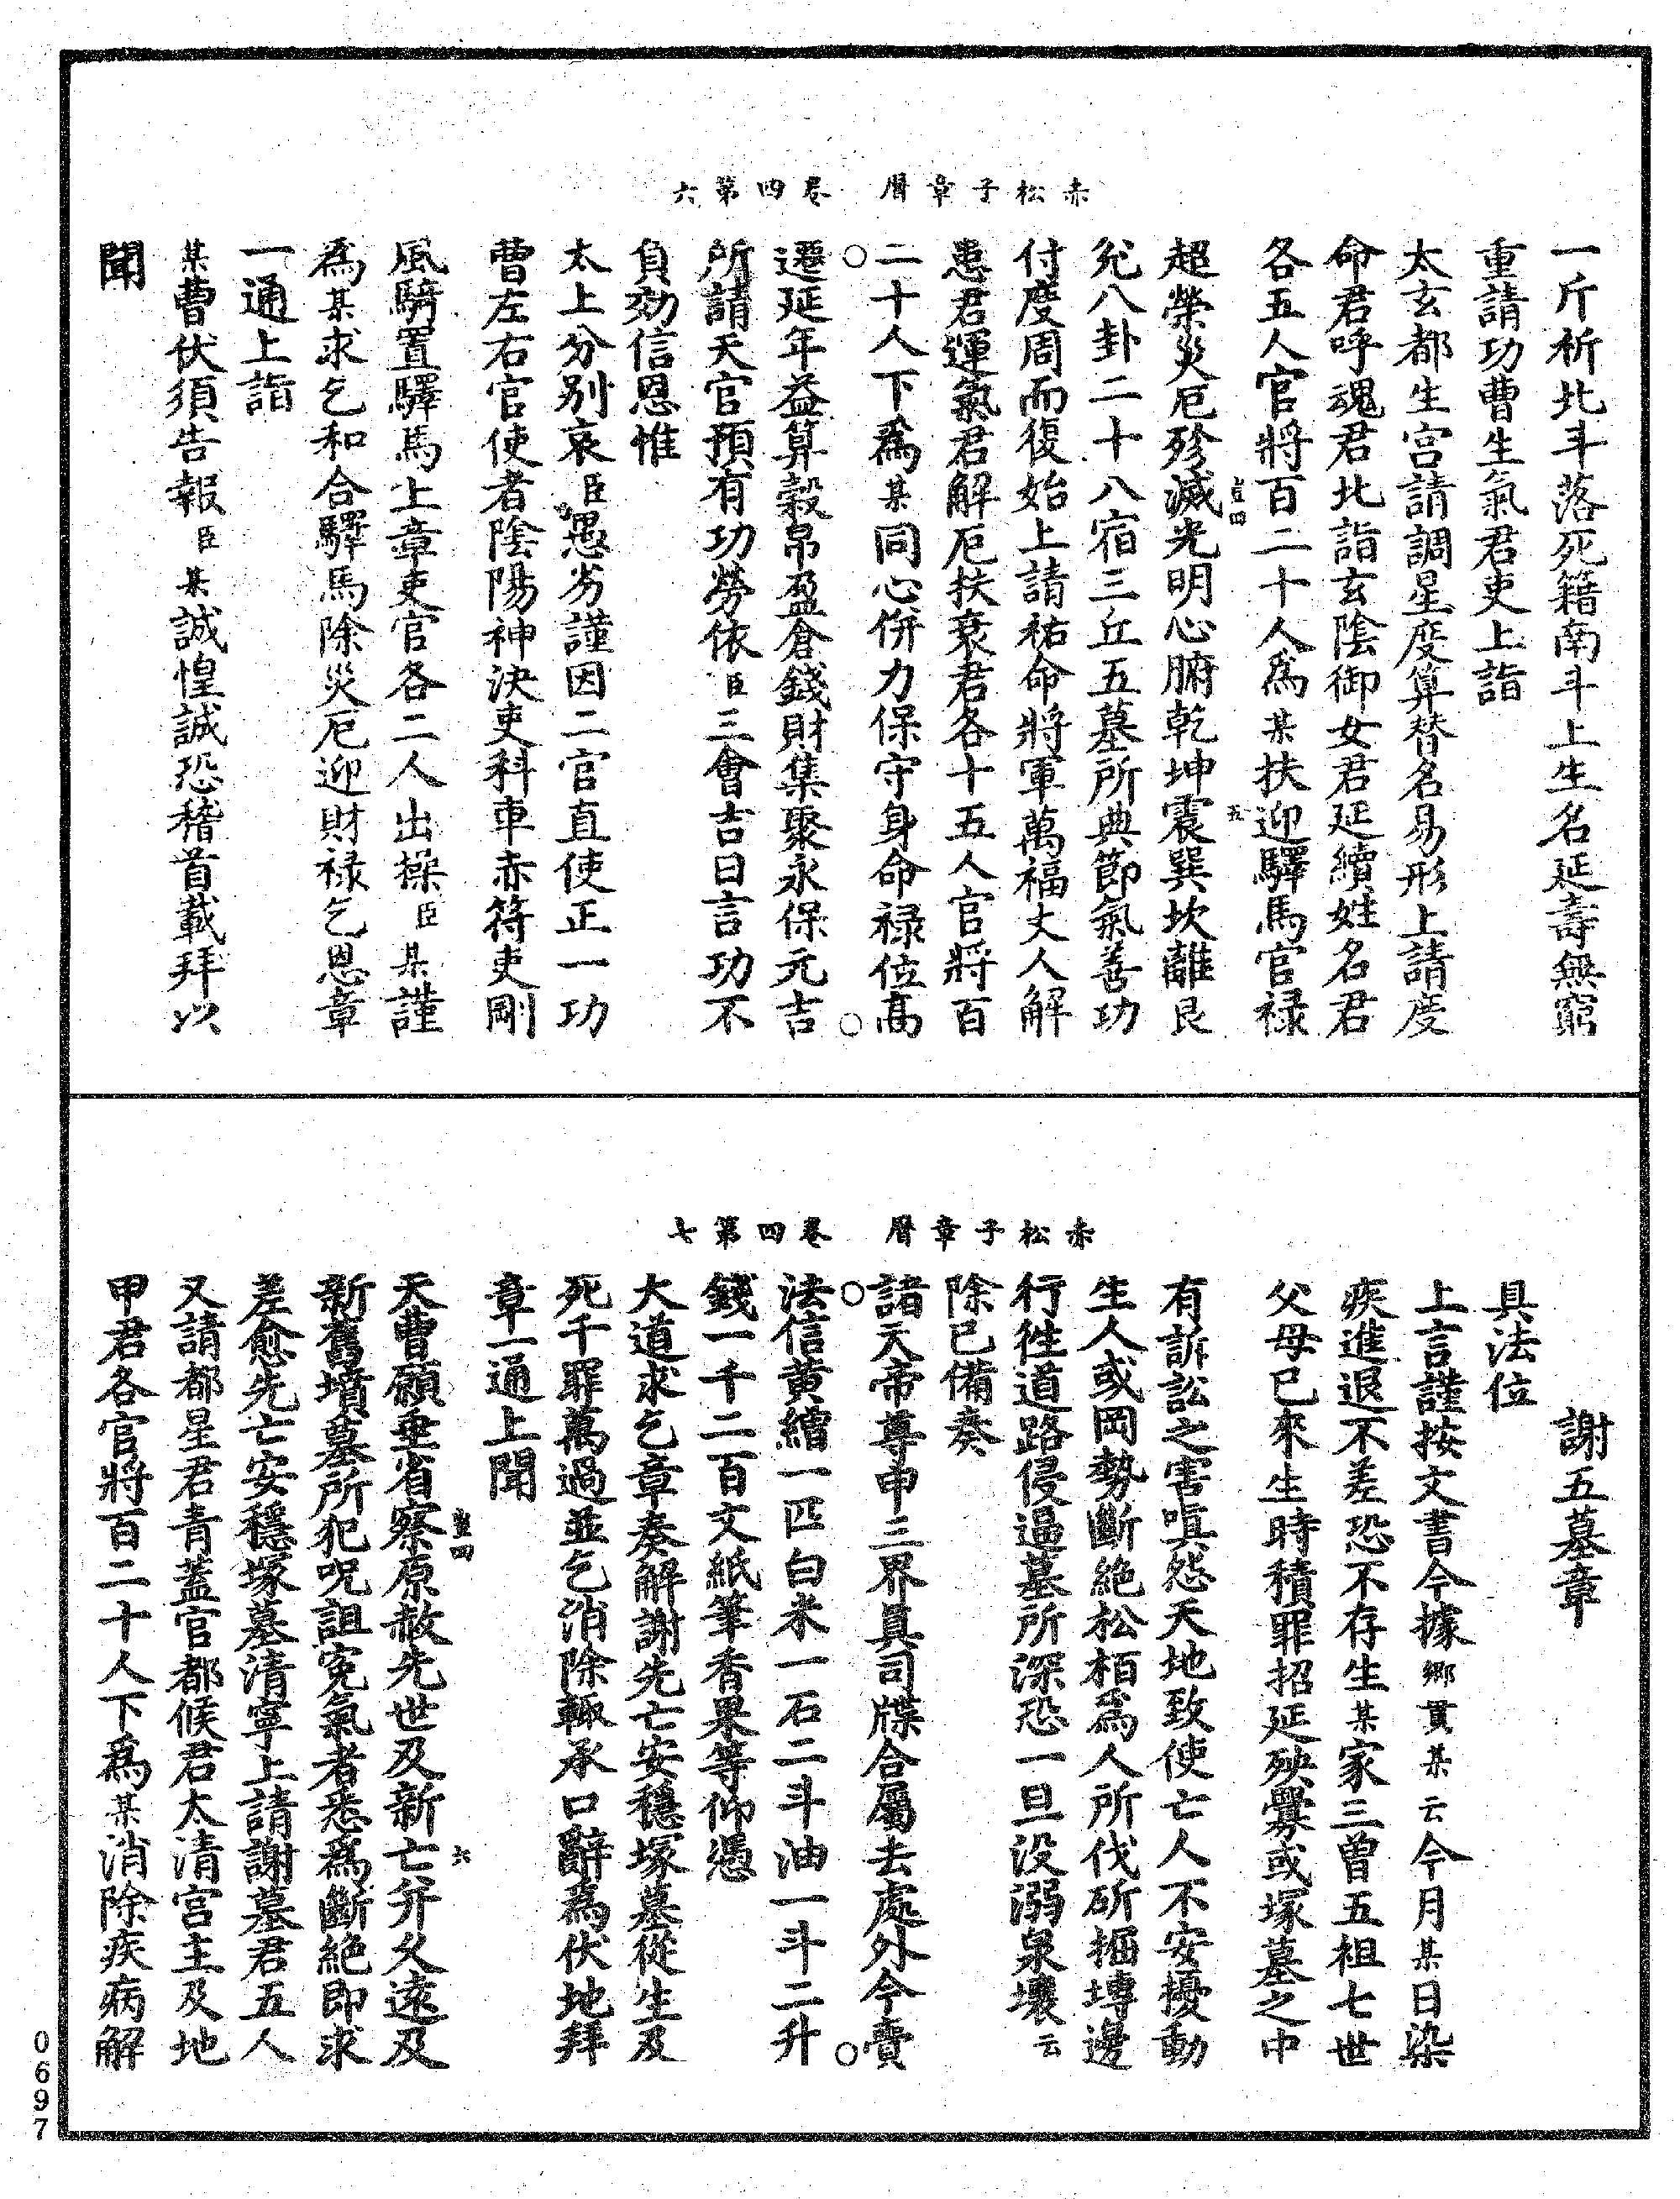 赤松子章曆　卷四第六
一斤祈北斗落死籍南斗上生名延壽無窮
重請功曹生氣君吏上詣
太玄都生宮請調星度算替名易形上請度
命君呼魂君北詣玄陰御女君延續姓名君
各五人官將百二十人爲某扶迎驛馬官祿
超榮災厄殄滅光明心腑乾坤震巽坎離艮
兊八卦二十八宿三丘五墓所典節氣善功
付度周而復始上請祐命將軍萬福丈人解
患君運氣君解厄扶衰君各十五人官將百
二十人下爲某同心併力保守身命祿位高
遷延年益算穀帛盈倉錢財集聚永保元吉
所請天官預有功勞依臣三會吉日言功不
負効信恩惟
太上分別哀臣愚劣謹因二官直使正一功
曹左右官使者陰陽神決吏科車赤符吏剛
風騎置驛馬上章吏官各二人出操臣某謹
爲某求乞和合驛馬除災厄迎財祿乞恩章
一通上詣
某曹伏須告報臣某誠惶誠恐稽首載拜以
聞
直四
五
赤松子章曆　卷四第七
謝五墓章
具法位
上言謹按文書今據鄉貫某云今月某日染
疾進退不差恐不存生某家三曾五祖七世
父母已來生時積罪招延殃釁或塚墓之中
有訴訟之害嗔怨天地致使亡人不安擾動
生人或岡勢斷絕松栢爲人所伐斫掘塼邊
行徃道路侵逼墓所深恐一旦没溺泉壤云
除已備奏
諸天帝尊申三界眞司牒合屬去處外今賷
法信黄繒一匹白米一石二斗油一斗二升
錢一千二百文紙筆香果等仰憑
大道求乞章奏解謝先亡安穩塚墓從生及
死千罪萬過並乞消除輒承口辭爲伏地拜
章一通上聞
天曹願垂省察原赦先世及新亡幷久遠及
新舊墳墓所犯呪詛寃氣者悉爲斷絕即求
差愈先亡安穩塚墓清寧上請謝墓君五人
又請都星君青蓋官都候君太清宮主及地
甲君各官將百二十人下爲某消除疾病解
直四
六
0697